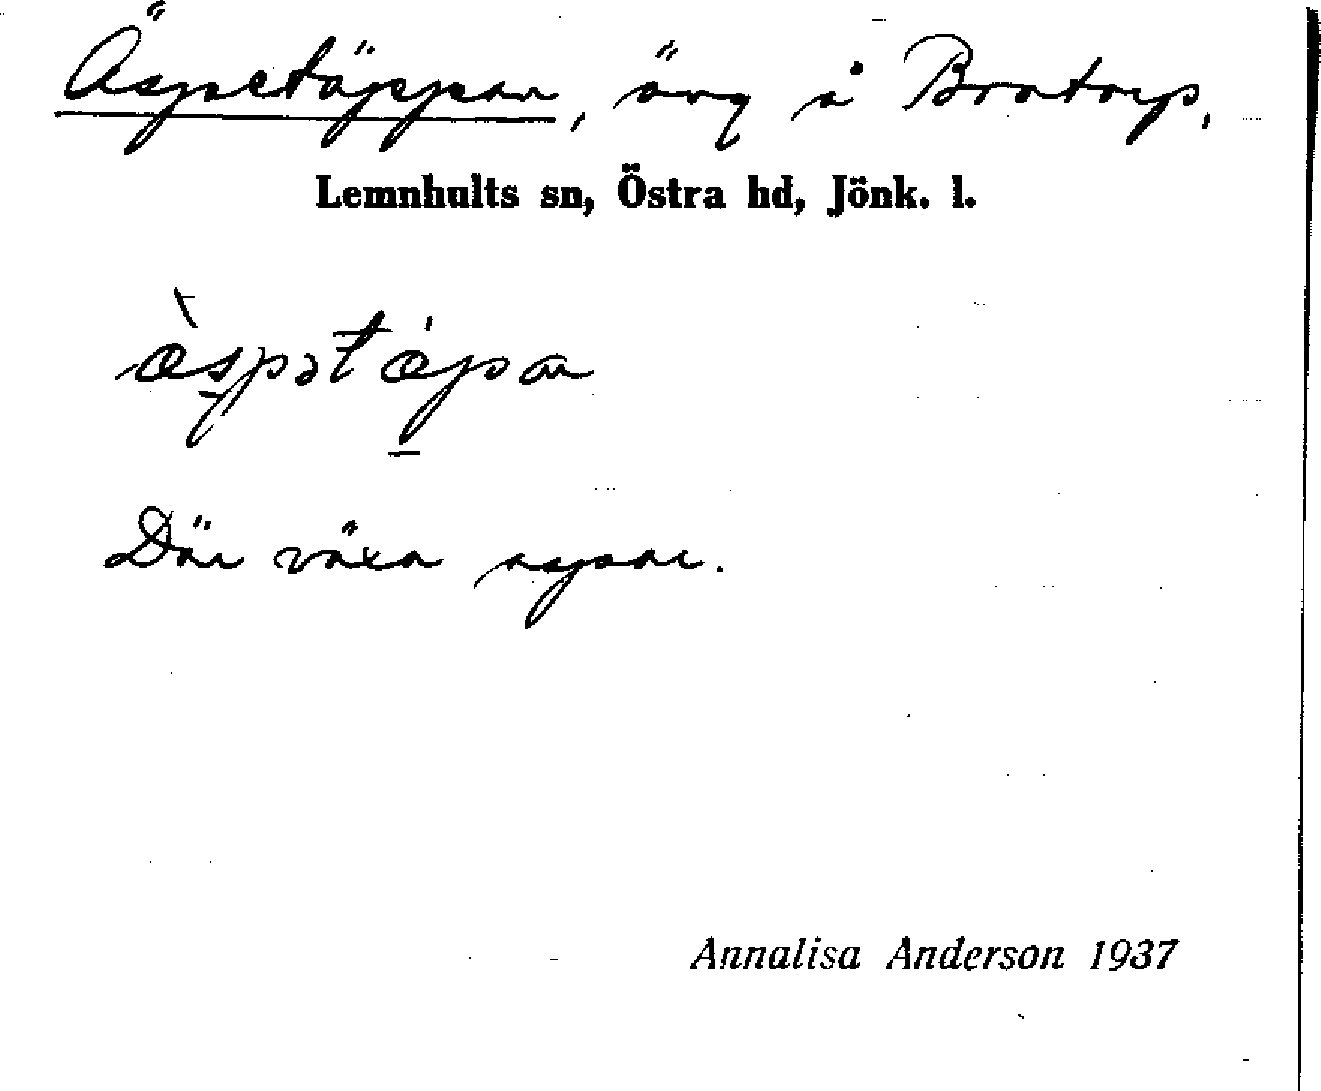 Äspetäppan, äng å Bratorp,
Lemnhults sn, Östra hd, Jönk. l.
æ̀spətǽpan
Där växa aspar.
Annalisa Anderson 1937